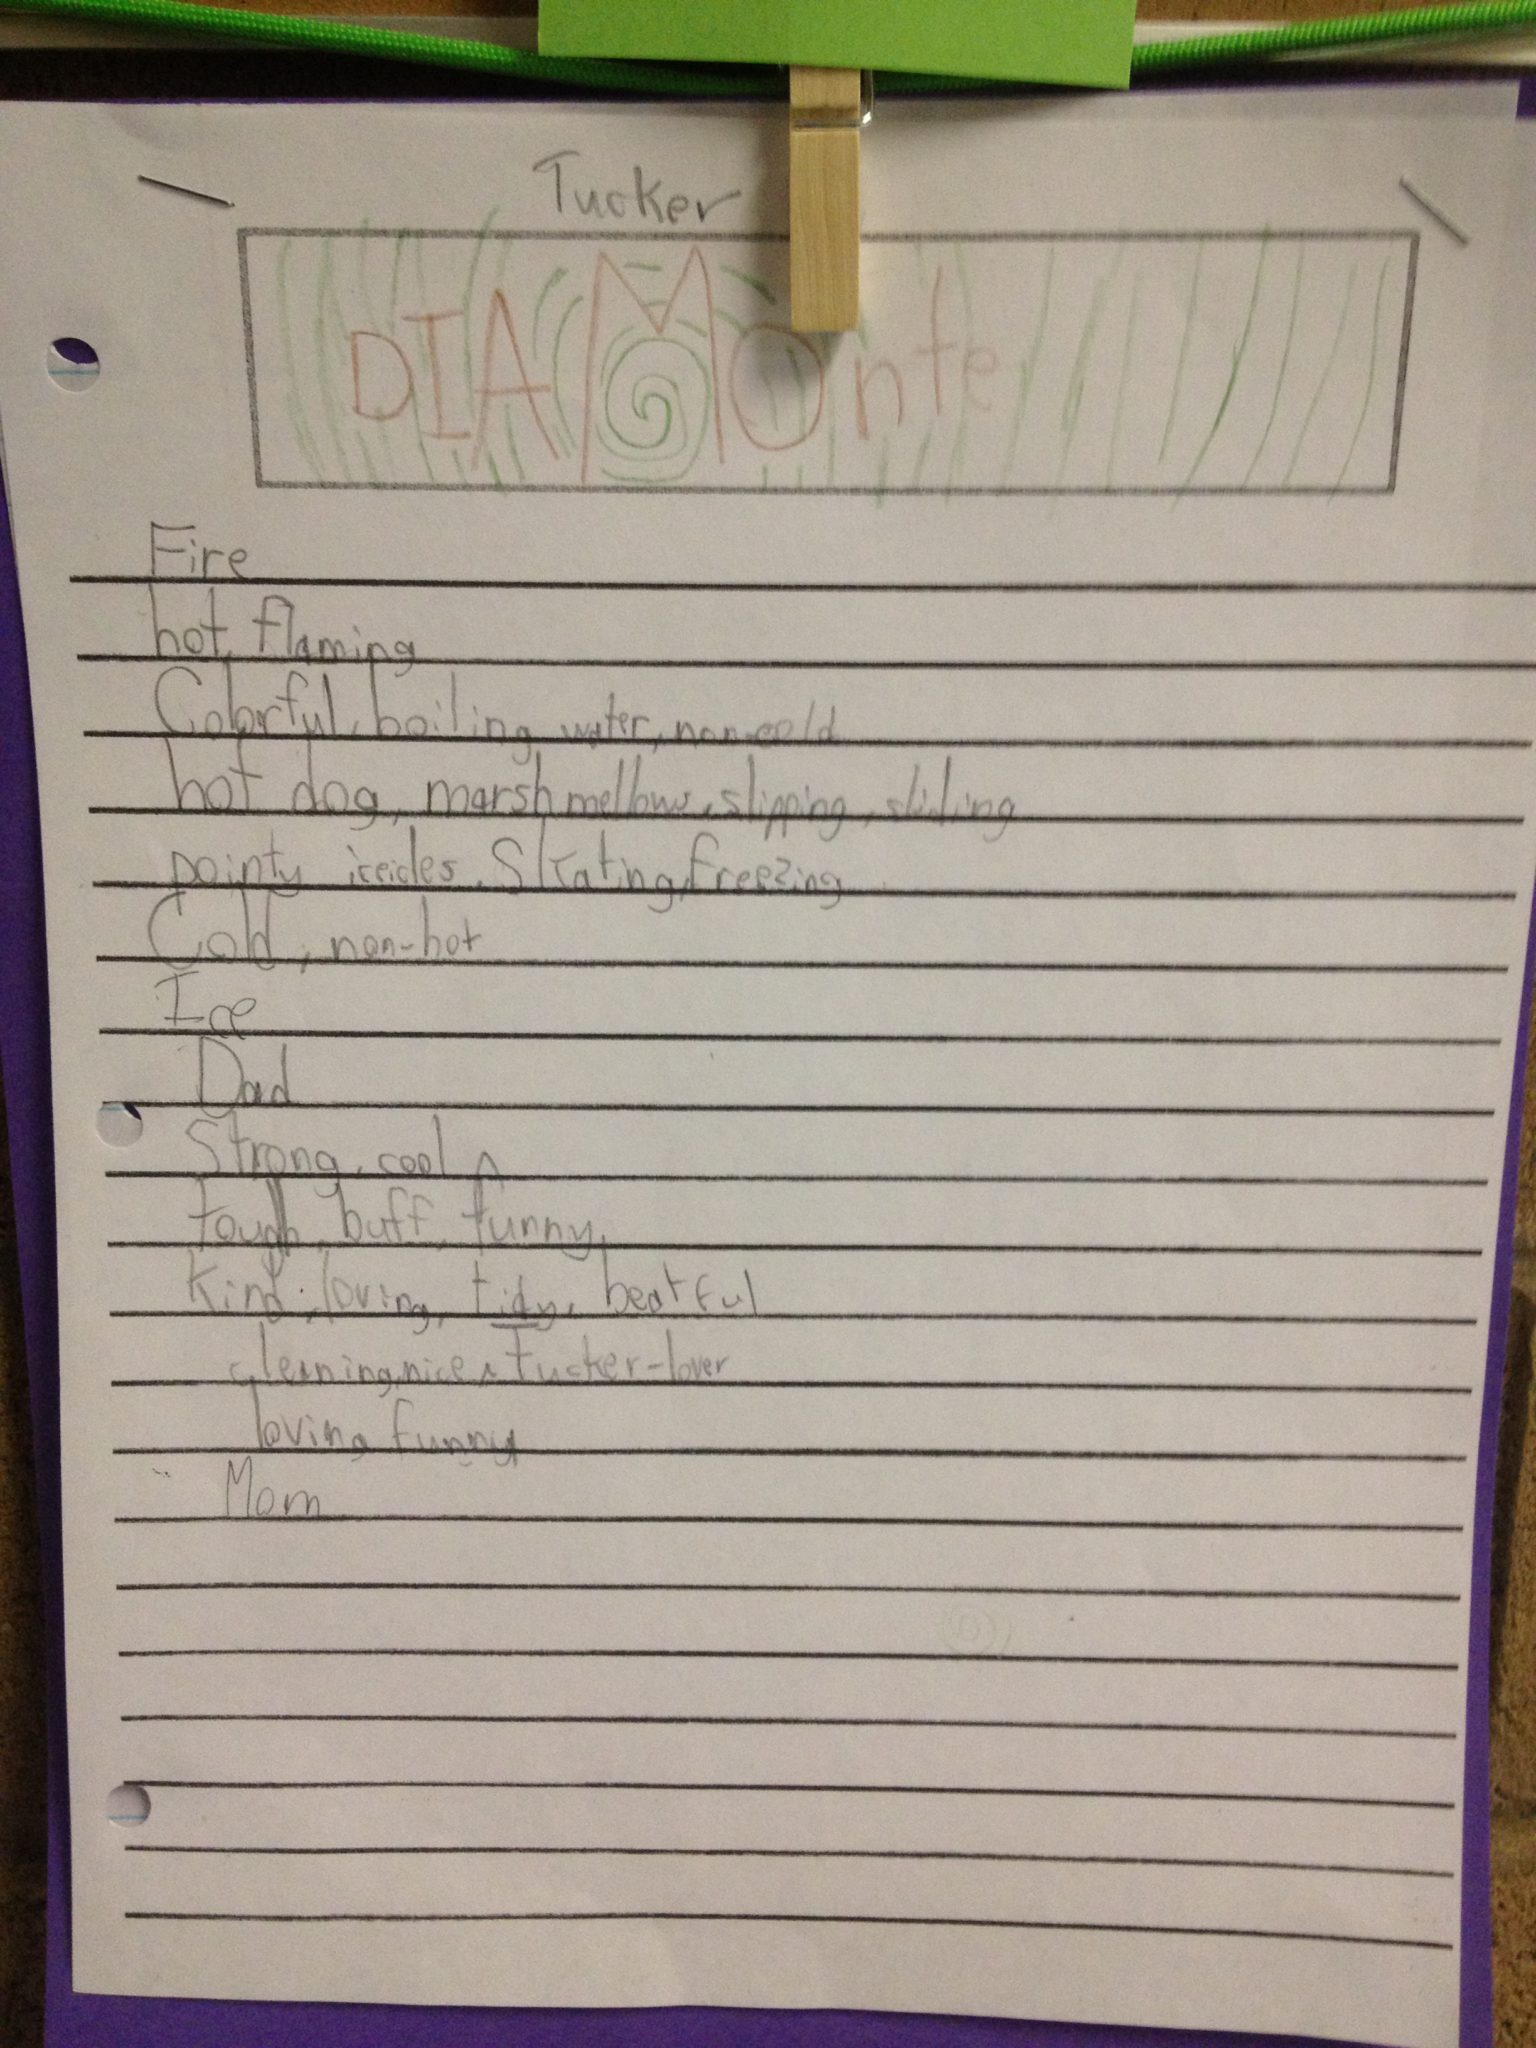 Tucker
DIAMOnte
Fire
hot, flaming
Colorful, boiling water, non-cold
hot dog, marshmellows, slipping, sliding
pointy iceicles, Skating, freezing
Cold, non-hot
Ice
Dad
Strong, cool
tough, buff, funny,
Kind, loving, tidy, beatful
cleaning, nice, tucker-lover
loving funny
Mom